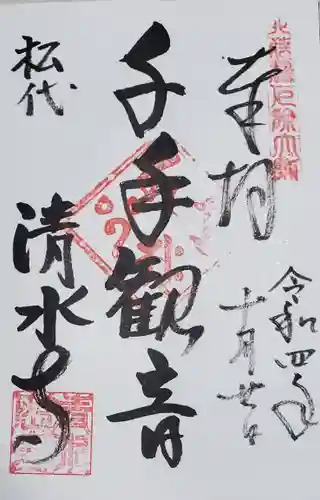 奉拝
令和四年
十月廿日
千手観音
松代
清水寺